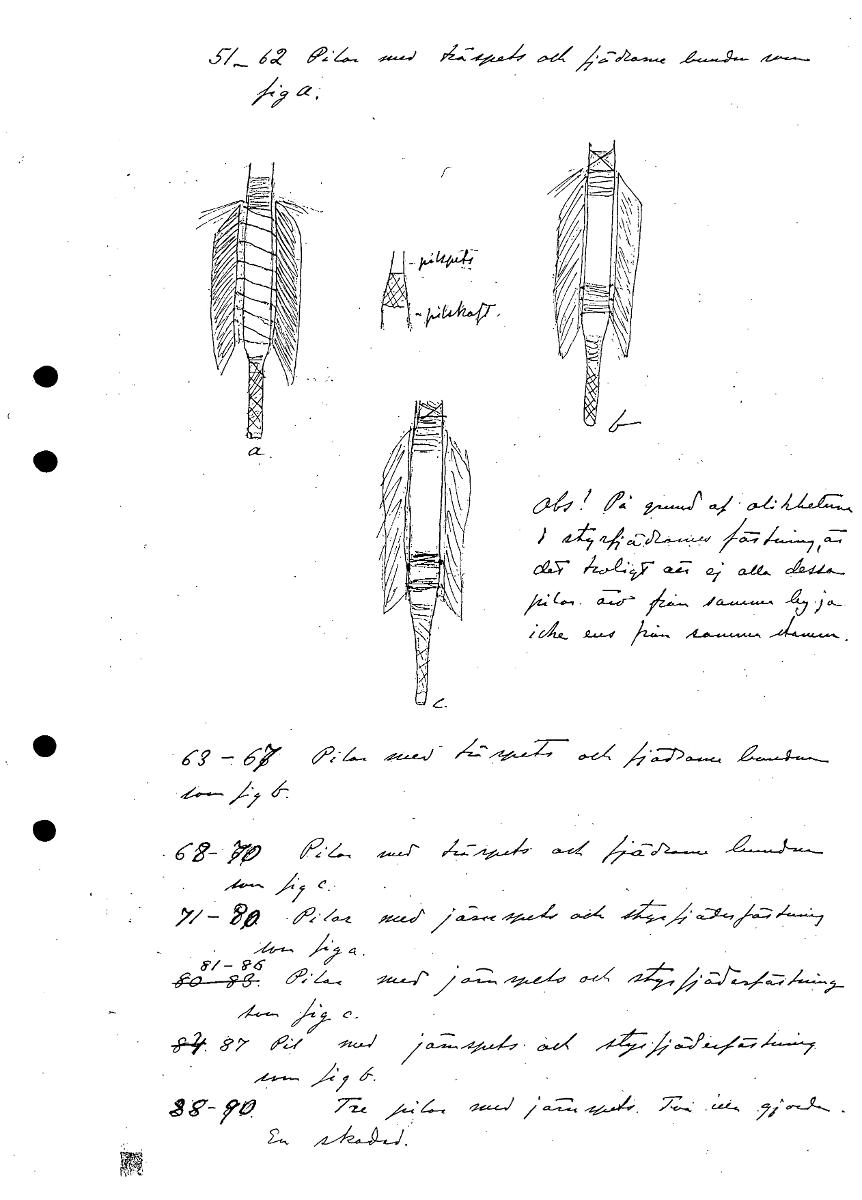 51_ 62 Pilar med träspets och fjädrarne bundna som
fig a.
- pilspets
- pilskaft.
a.
b
c.
Obs! På grund af olikheterna
i styrfjädrarnes fästning, är
det troligt att ej alla dessa
pilar äro från samma by ja
icke ens från samma stamm.
63 - 67 Pilar med träspets och fjädrarne bundna
som fig b.
68 - 70 Pilar med träspets och fjädrarne bundna
som fig c.
71 - 80 Pilar med järnspets och styrfjäderfästning
som fig a.
81 - 86
80 - 83. Pilar med järnspets och styrfjäderfästning
som fig c.
84. 87 Pil med järnspets och styrfjäderfästning
som fig b.
88-90 Tre pilar med järnspets. Två illa gjorda.
En skadad.